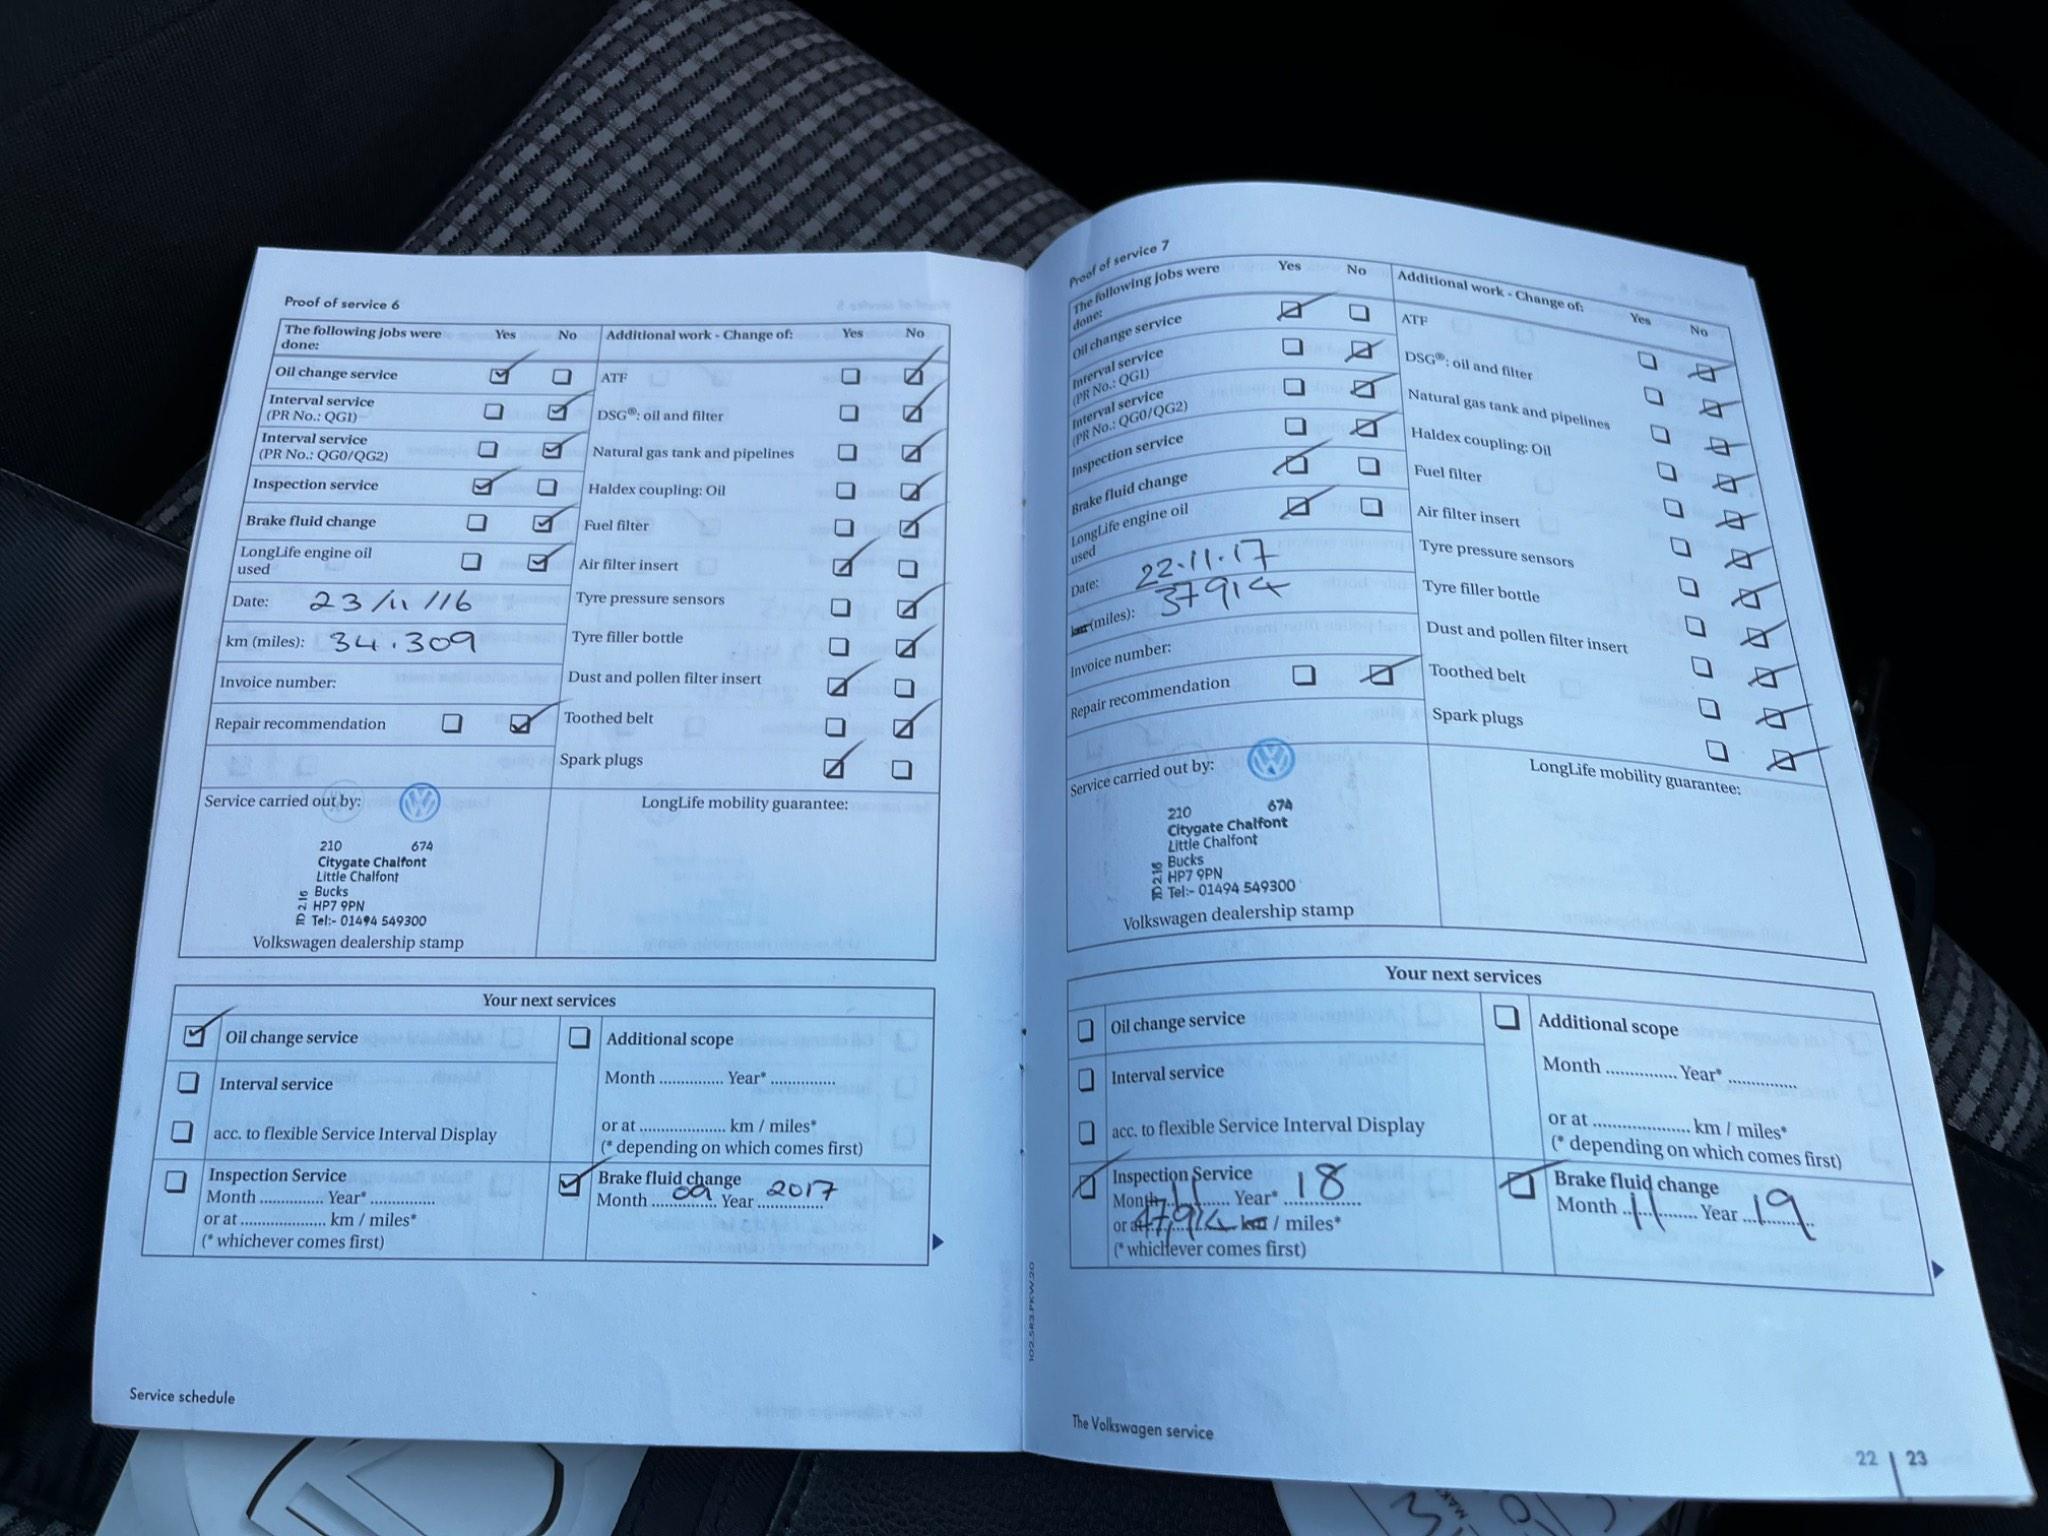 Proof of service 6
The following jobs were Yes No Additional work - Change of: Yes No
done:
Oil change service ATF
Interval service DSG®: oil and filter
(PR No.: QG1)
Interval service Natural gas tank and pipelines
(PR No.: QG0/QG2)
Inspection service Haldex coupling: Oil
Brake fluid change Fuel filter
LongLife engine oil Air filter insert
used
Date: 23/11/16 Tyre pressure sensors
km (miles): 34.309 Tyre filler bottle
Invoice number: Dust and pollen filter insert
Repair recommendation Toothed belt
Spark plugs
Service carried out by: LongLife mobility guarantee:
210 674
Citygate Chalfont
Little Chalfont
Bucks
HP7 9PN
Tel:- 01494 549300
ID 216
Volkswagen dealership stamp
Your next services
Oil change service Additional scope
Interval service Month .............. Year* ..............
acc. to flexible Service Interval Display or at .................... km / miles*
(* depending on which comes first)
Inspection Service Brake fluid change
Month .............. Year* .............. Month 09 Year 2017
or at .................... km / miles*
(* whichever comes first)
Service schedule
Proof of service 7
The following jobs were Yes No Additional work - Change of: Yes No
done:
Oil change service ATF
Interval service DSG®: oil and filter
(PR No.: QG1)
Interval service Natural gas tank and pipelines
(PR No.: QG0/QG2)
Inspection service Haldex coupling: Oil
Brake fluid change Fuel filter
LongLife engine oil Air filter insert
used
Date: 22.11.17 Tyre pressure sensors
km (miles): 37914 Tyre filler bottle
Invoice number: Dust and pollen filter insert
Repair recommendation Toothed belt
Spark plugs
Service carried out by: LongLife mobility guarantee:
210 674
Citygate Chalfont
Little Chalfont
Bucks
HP7 9PN
Tel:- 01494 549300
ID 216
Volkswagen dealership stamp
Your next services
Oil change service Additional scope
Interval service Month .............. Year* ..............
acc. to flexible Service Interval Display or at .................... km / miles*
(* depending on which comes first)
Inspection Service Brake fluid change
Month 11 Year* 18 Month 11 Year 19
or at 47,914 km / miles*
(* whichever comes first)
The Volkswagen service
22 | 23